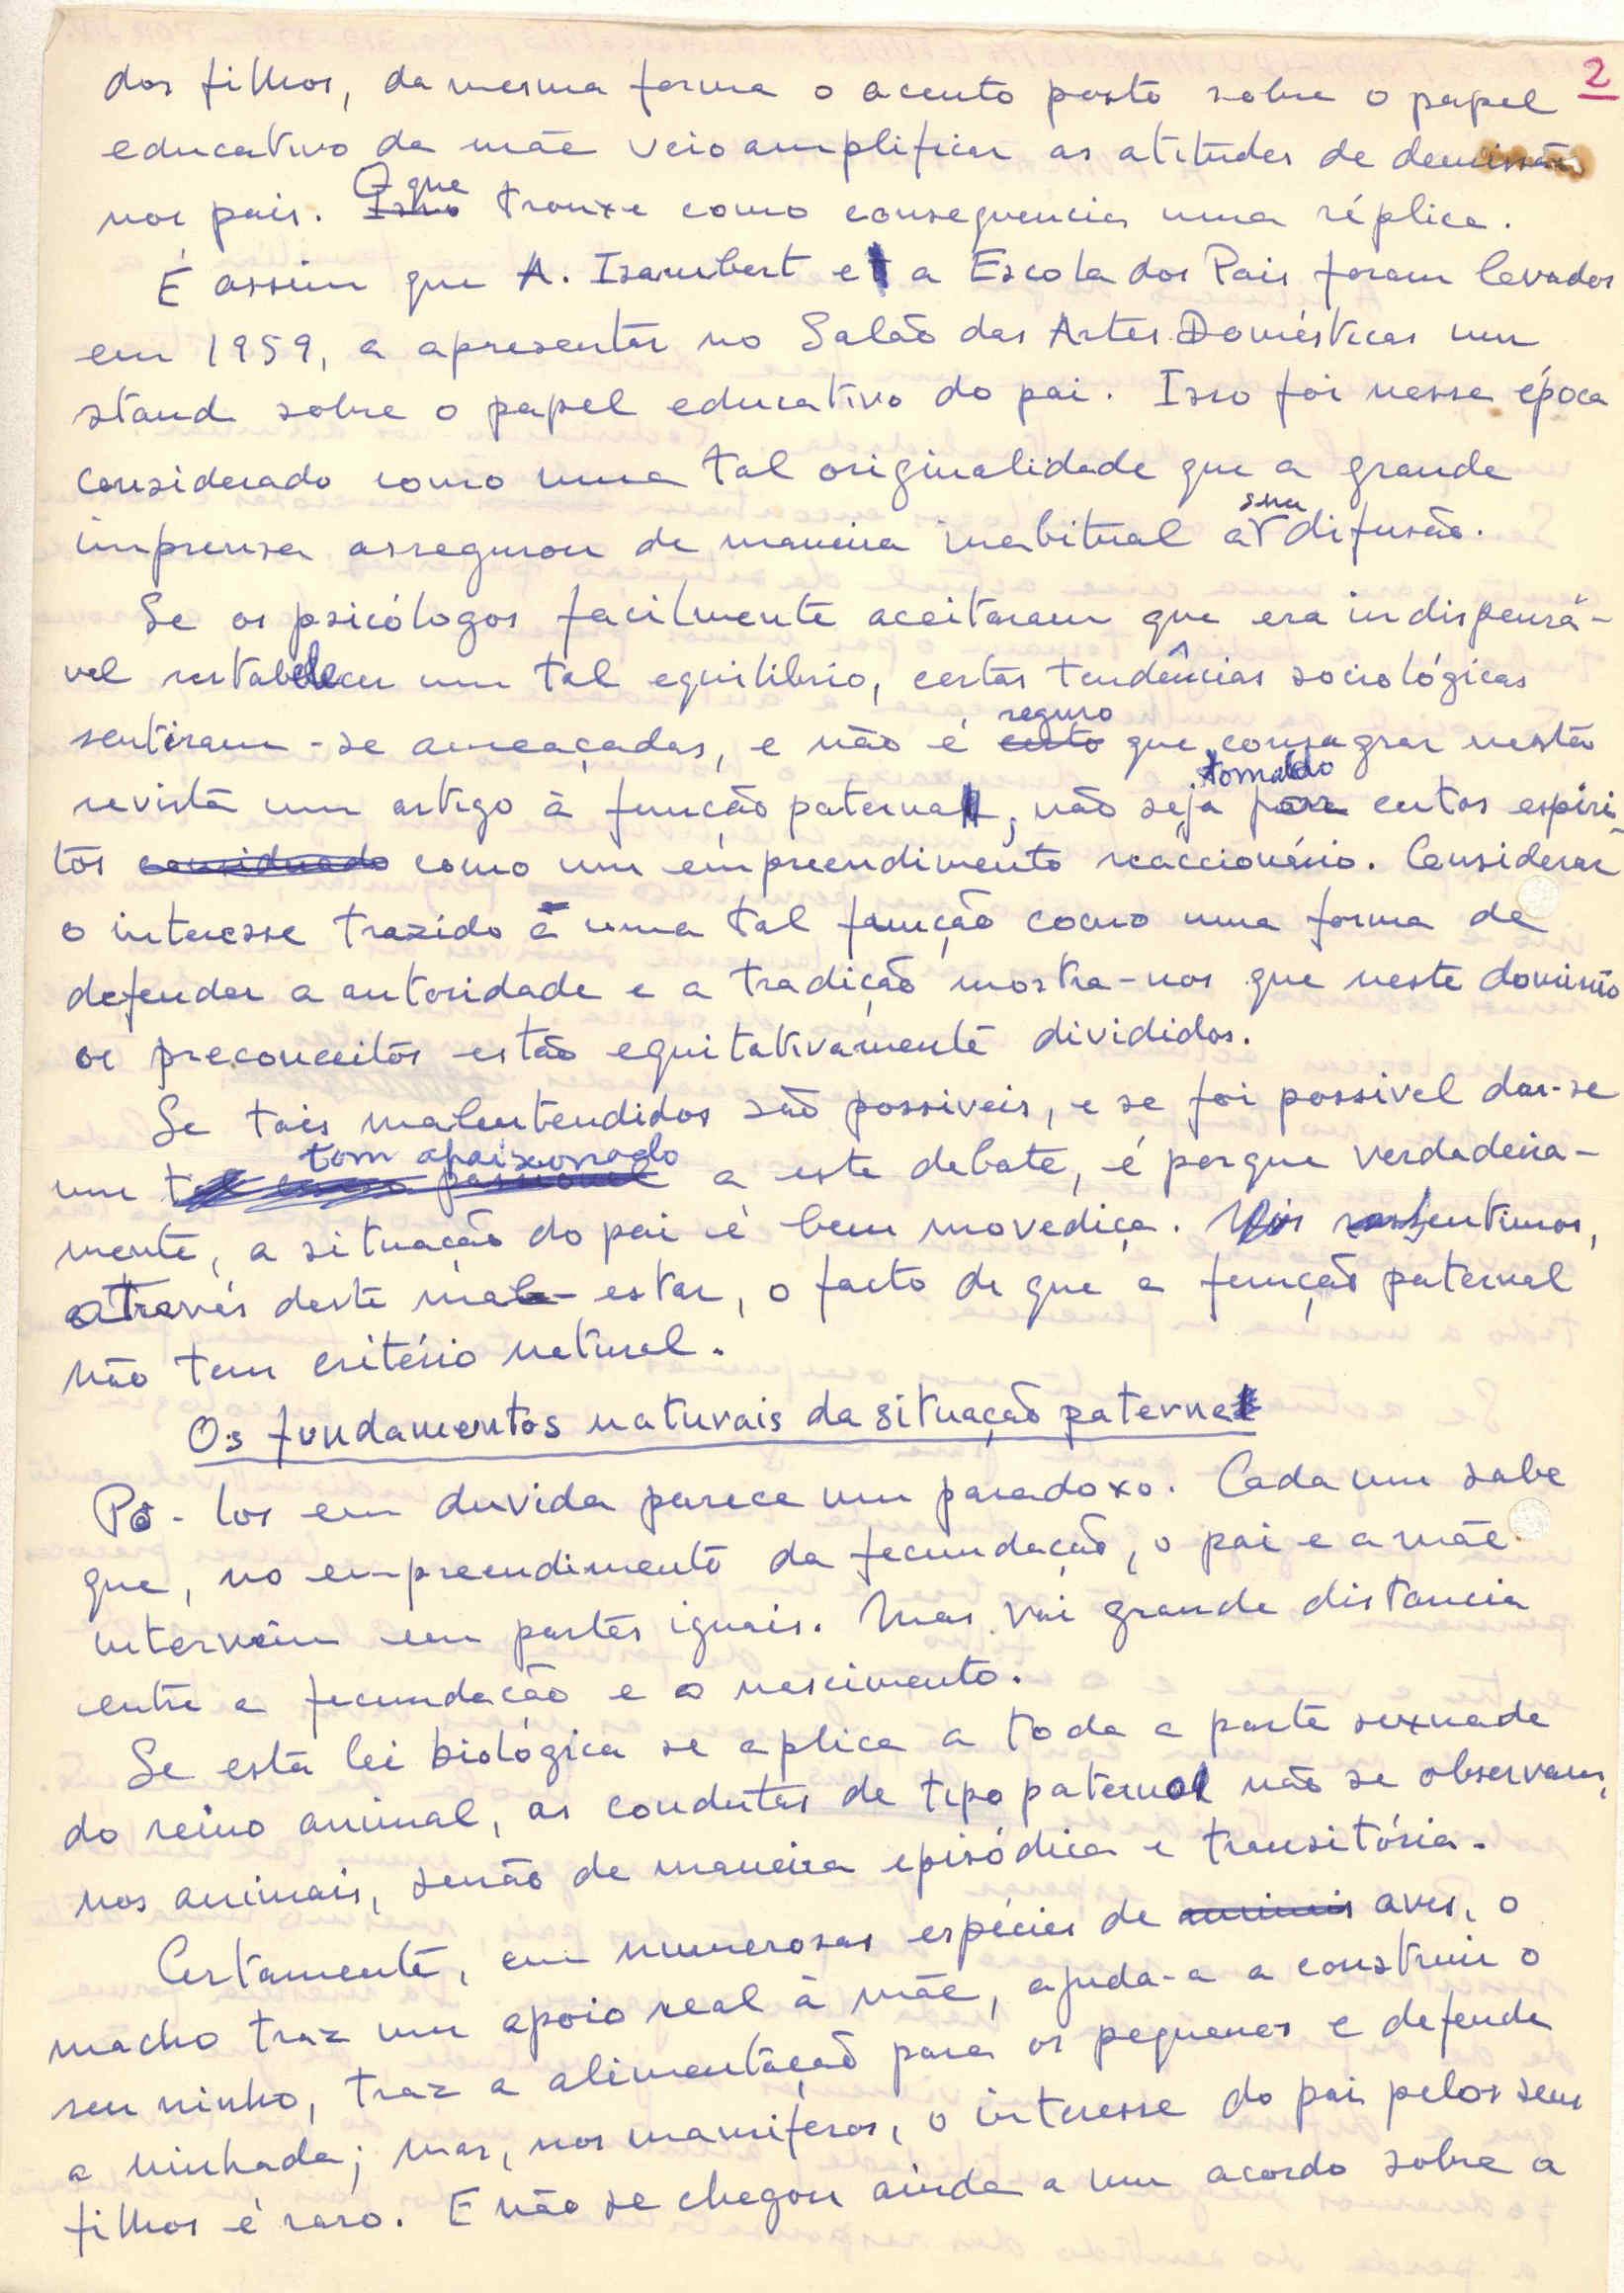 2
dos filhos, da mesma forma o acento posto sobre o papel
educativo da mãe veio amplificar as atitudes de demissão
nos pais. O que trouxe como consequencia uma réplica.
É assim que A. Isambert e a Escola dos Pais foram levados
em 1959, a apresentar no Salão das Artes Domésticas um
stand sobre o papel educativo do pai. Isso foi nessa época
considerado como uma tal originalidade que a grande
imprensa assegurou de maneira inabitual a sua difusão.
Se os psicólogos facilmente aceitaram que era indispensá-
vel restabelecer um tal equilibrio, certas tendências sociológicas
sentiram-se ameaçadas, e não é seguro que consagrar nesta
revista um artigo à função paterna, não seja tomado por certos espiri-
tos como um empreendimento reaccionário. Considerar
o interesse trazido a uma tal função como uma forma de
defender a autoridade e a tradição mostra-nos que neste dominio
os preconceitos estão equitativamente divididos.
Se tais malentendidos são possiveis, e se foi possivel dar-se
um tom apaixonado a este debate, é porque verdadeira-
mente, a situação do pai é bem movediça. Nós sentimos,
através deste mal-estar, o facto de que a função paternal
não tem critério natural.
Os fundamentos naturais da situação paterna
Pô-los em duvida parece um paradoxo. Cada um sabe
que, no empreendimento da fecundação, o pai e a mãe
intervêm em partes iguais. Mas vai grande distancia
entre a fecundação e o nascimento.
Se esta lei biológica se aplica a toda a parte sexuada
do reino animal, as condutas de tipo paternal não se observam,
nos animais, senão de maneira episódica e transitória.
Certamente, em numerosas espécies de aves, o
macho traz um apoio real à mãe, ajuda-a a construir o
seu ninho, traz a alimentação para os pequenos e defende
a ninhada; mas, nos mamiferos, o interesse do pai pelos seus
filhos é raro. E não se chegou ainda a um acordo sobre a